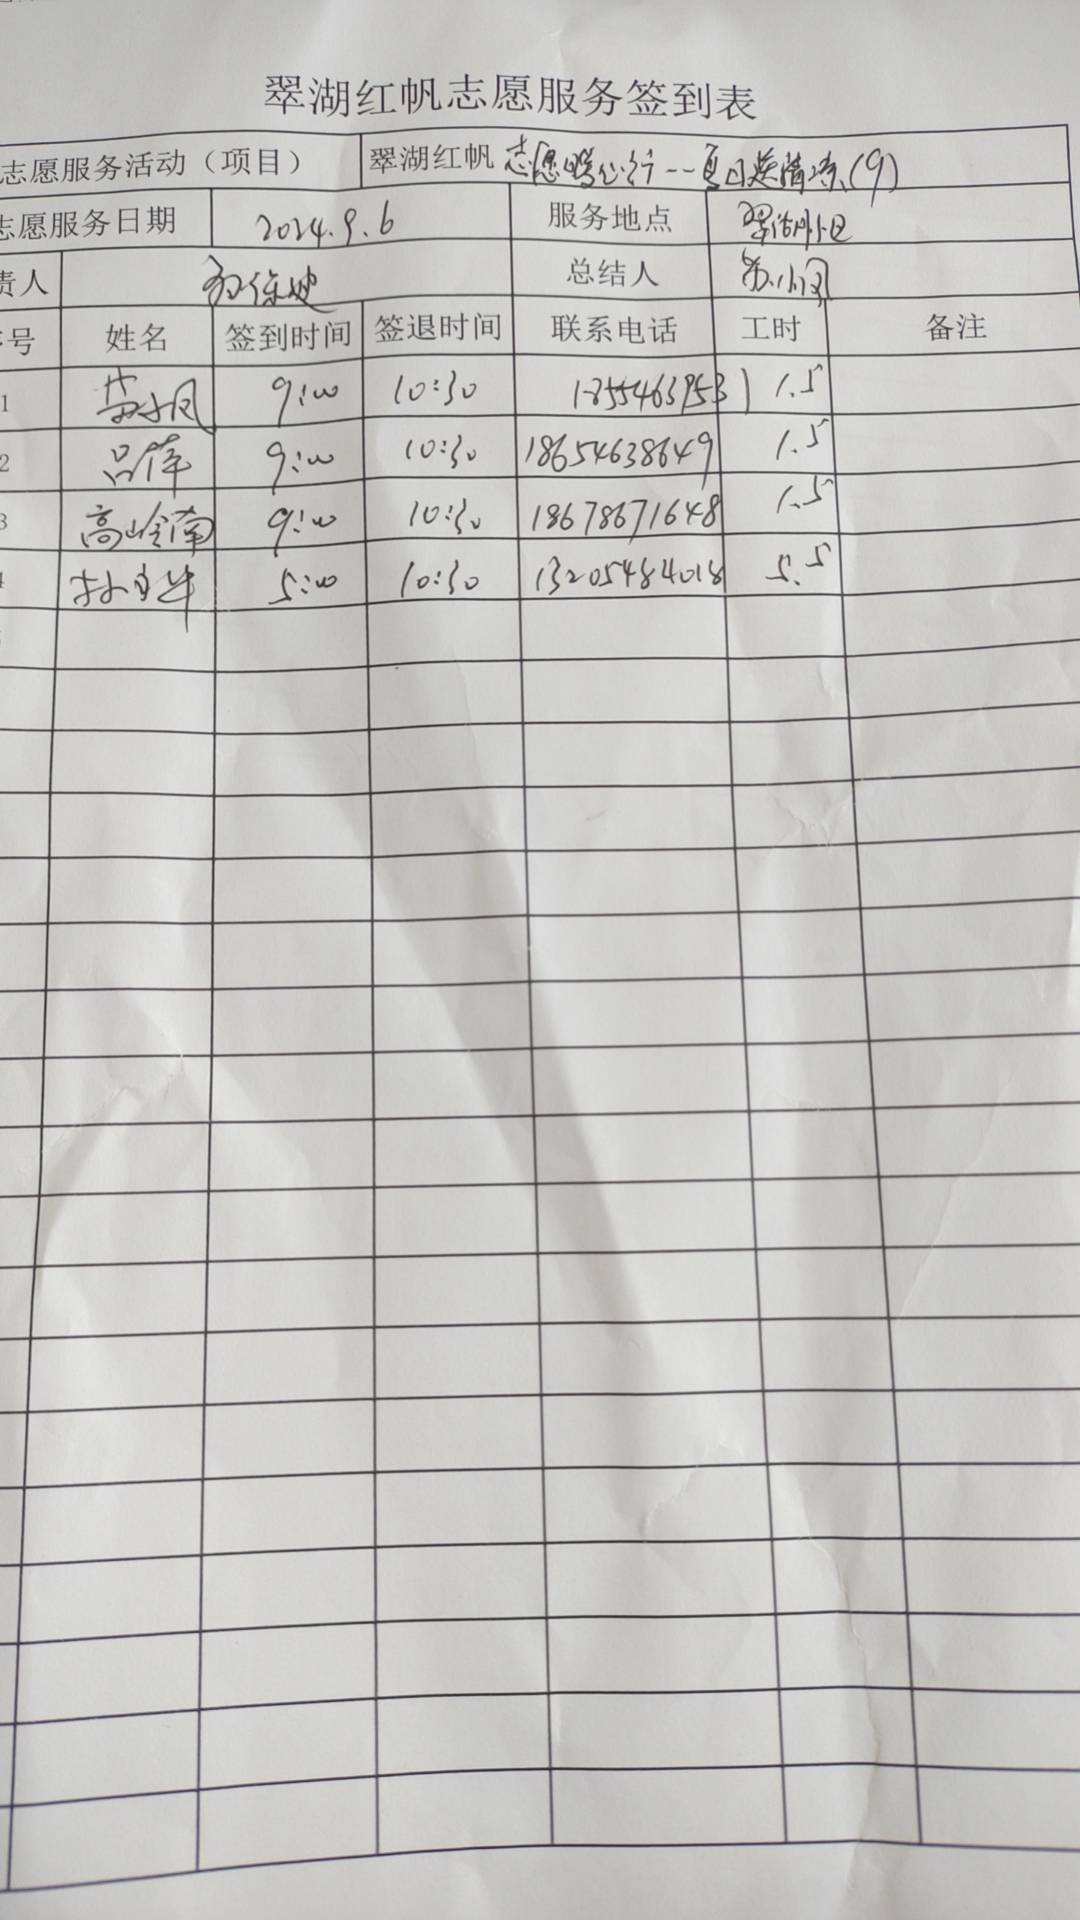 翠湖红帆志愿服务签到表
志愿服务活动（项目） 翠湖红帆 志愿暖心行--夏日送清凉(9)
志愿服务日期 2024.9.6 服务地点 翠湖小区
责人 总结人
号 姓名 签到时间 签退时间 联系电话 工时 备注
1 9:00 10:30 1.5
2 吕萍 9:00 10:30 18654638649 1.5
3 高岭南 9:00 10:30 18678671648 1.5
5:00 10:30 13205484018 5.5